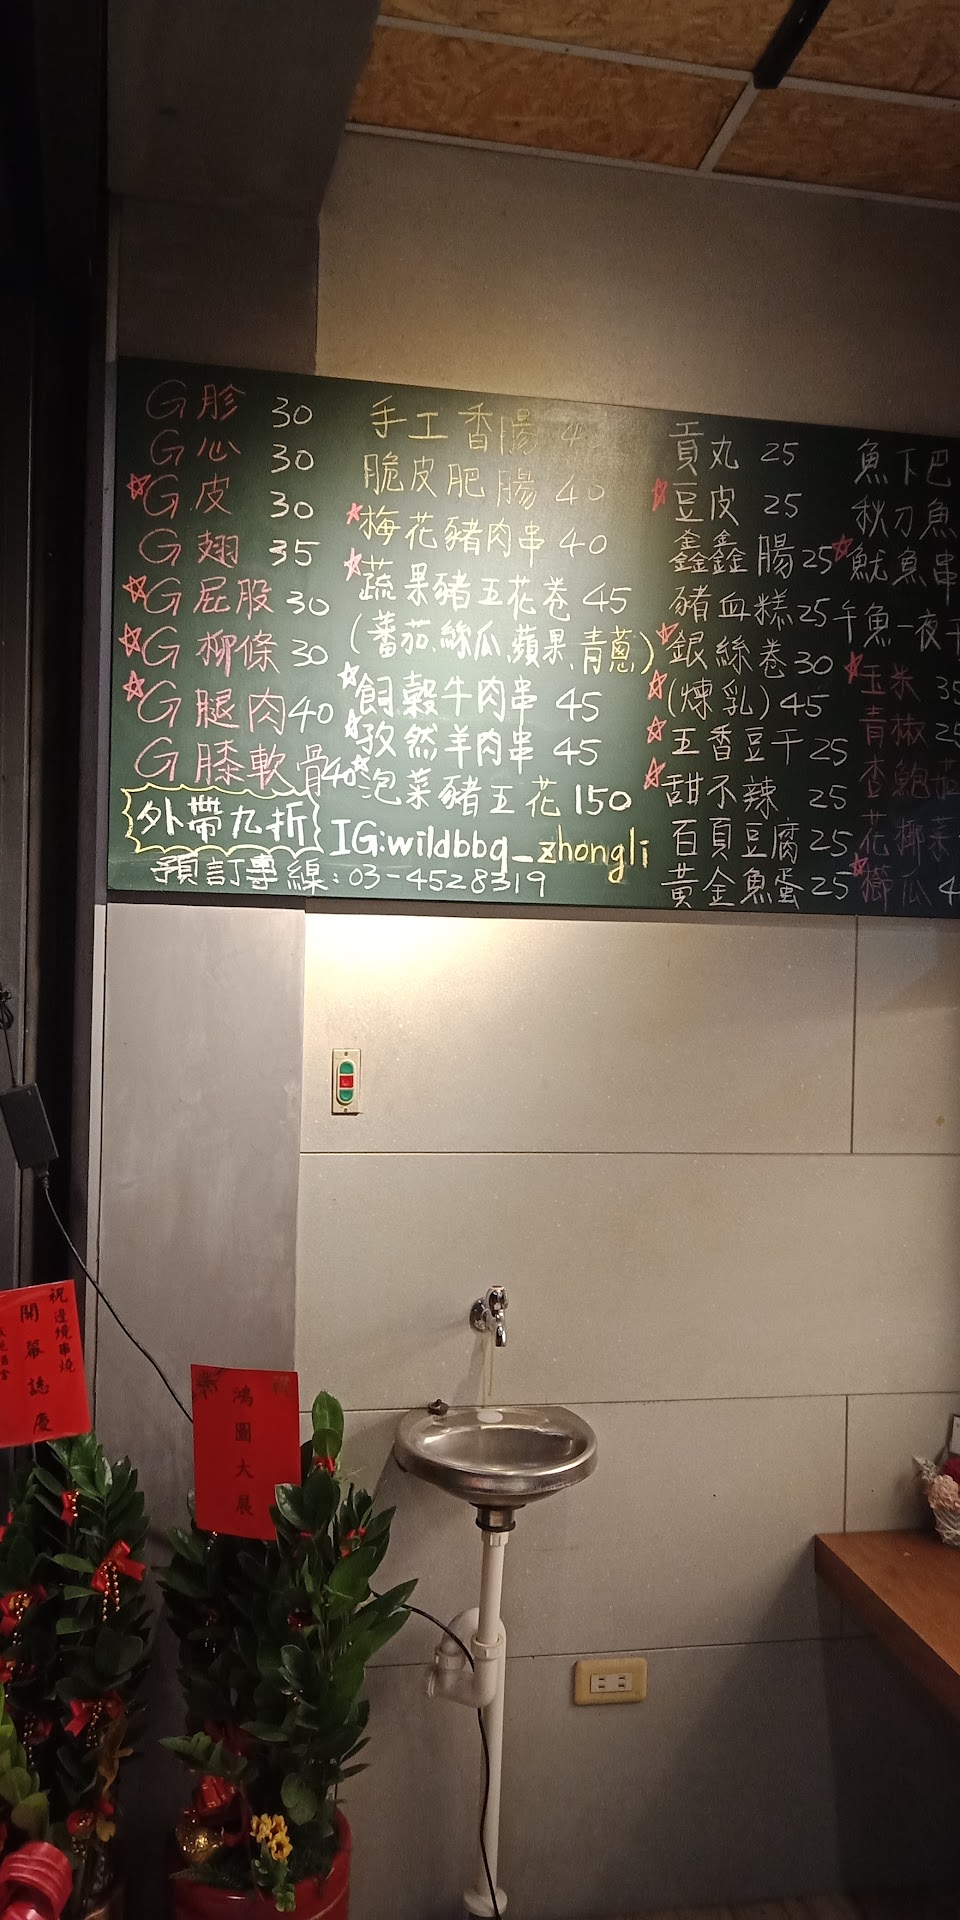 G胗 30
G心 30
G皮 30
G翅 35
G屁股 30
G柳條 30
G腿肉 40
G膝軟骨 40
外帶九折
預訂專線:03-4528319
手工香腸 4
脆皮肥腸 40
梅花豬肉串 40
蔬果豬五花卷 45
(蕃茄.絲瓜.蘋果.青蔥)
飼穀牛肉串 45
孜然羊肉串 45
泡菜豬五花 150
IG:wildbbq_zhongli
貢丸 25
豆皮 25
鑫鑫腸 25
豬血糕 25
銀絲卷 30
(煉乳) 45
五香豆干 25
甜不辣 25
百頁豆腐 25
黃金魚蛋 25
魚下巴
秋刀魚
魷魚串
午魚一夜干
玉米 35
青椒 25
杏鮑菇
花椰菜
櫛瓜 4
祝
邊燒串燒
開幕誌慶
鴻圖大展